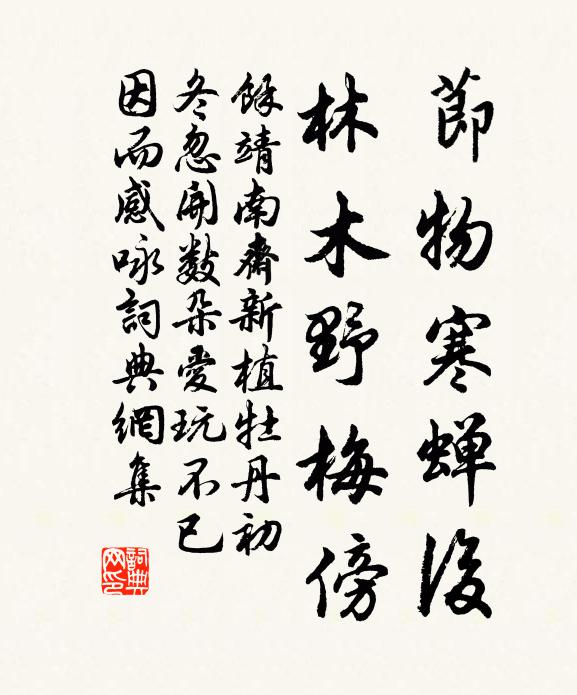 節物寒蟬後
林木野梅傍
餘靖南齋新植牡丹初
冬忽開數朵愛玩不已
因而感咏詞典網集
詞典網印